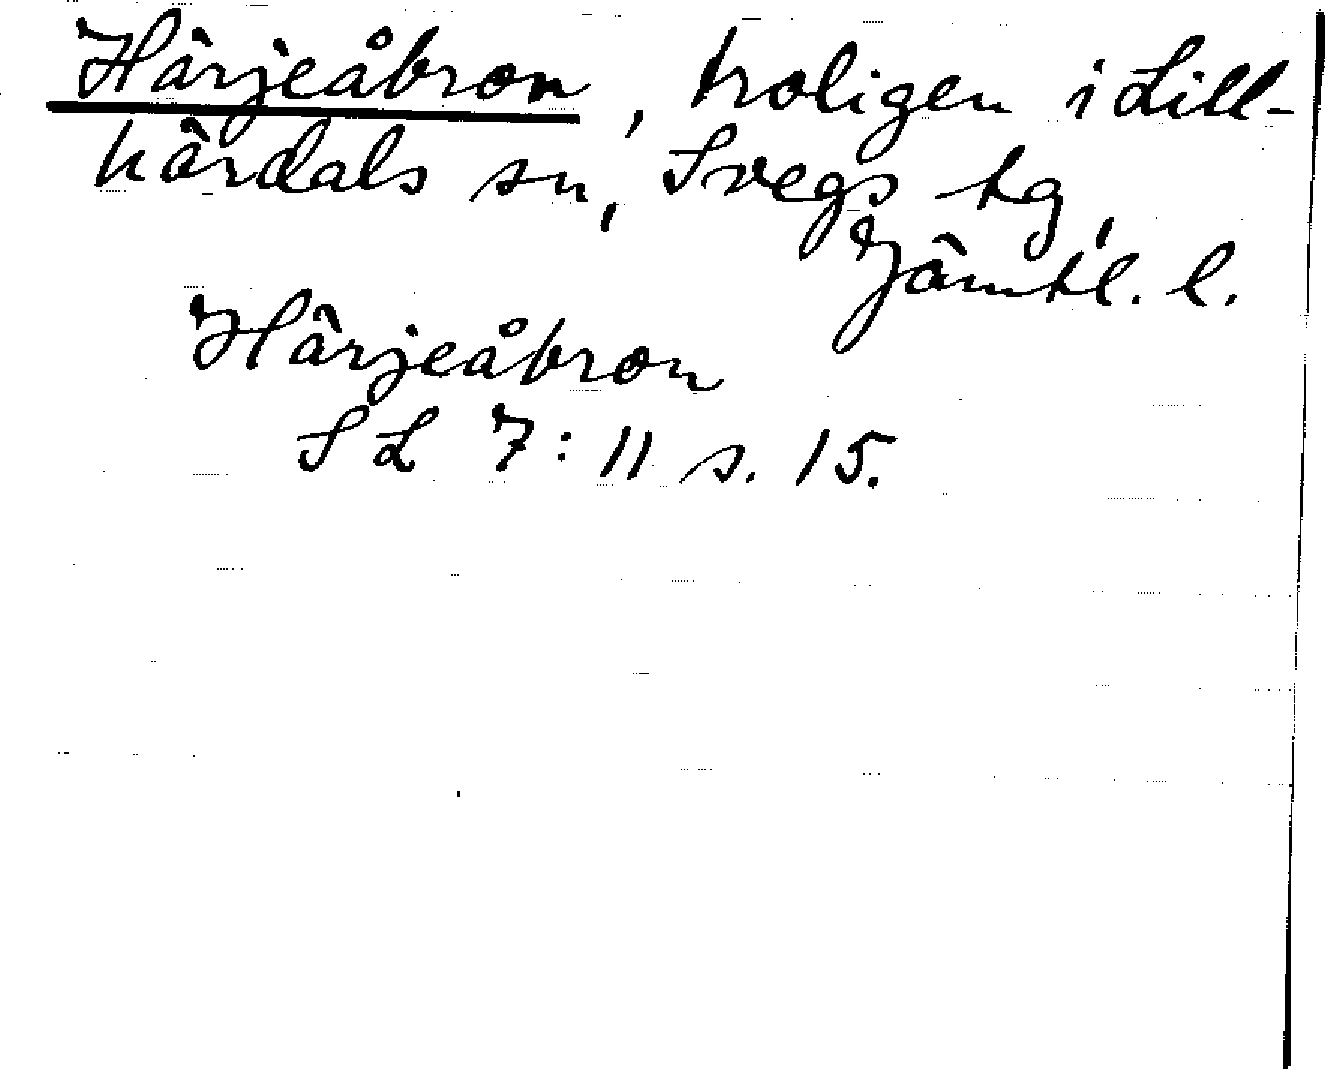 Härjeåbron, troligen i Lill-
härdals sn, Svegs tg,
Jämtl. l.
Härjeåbron
SL 7:11 s. 15.